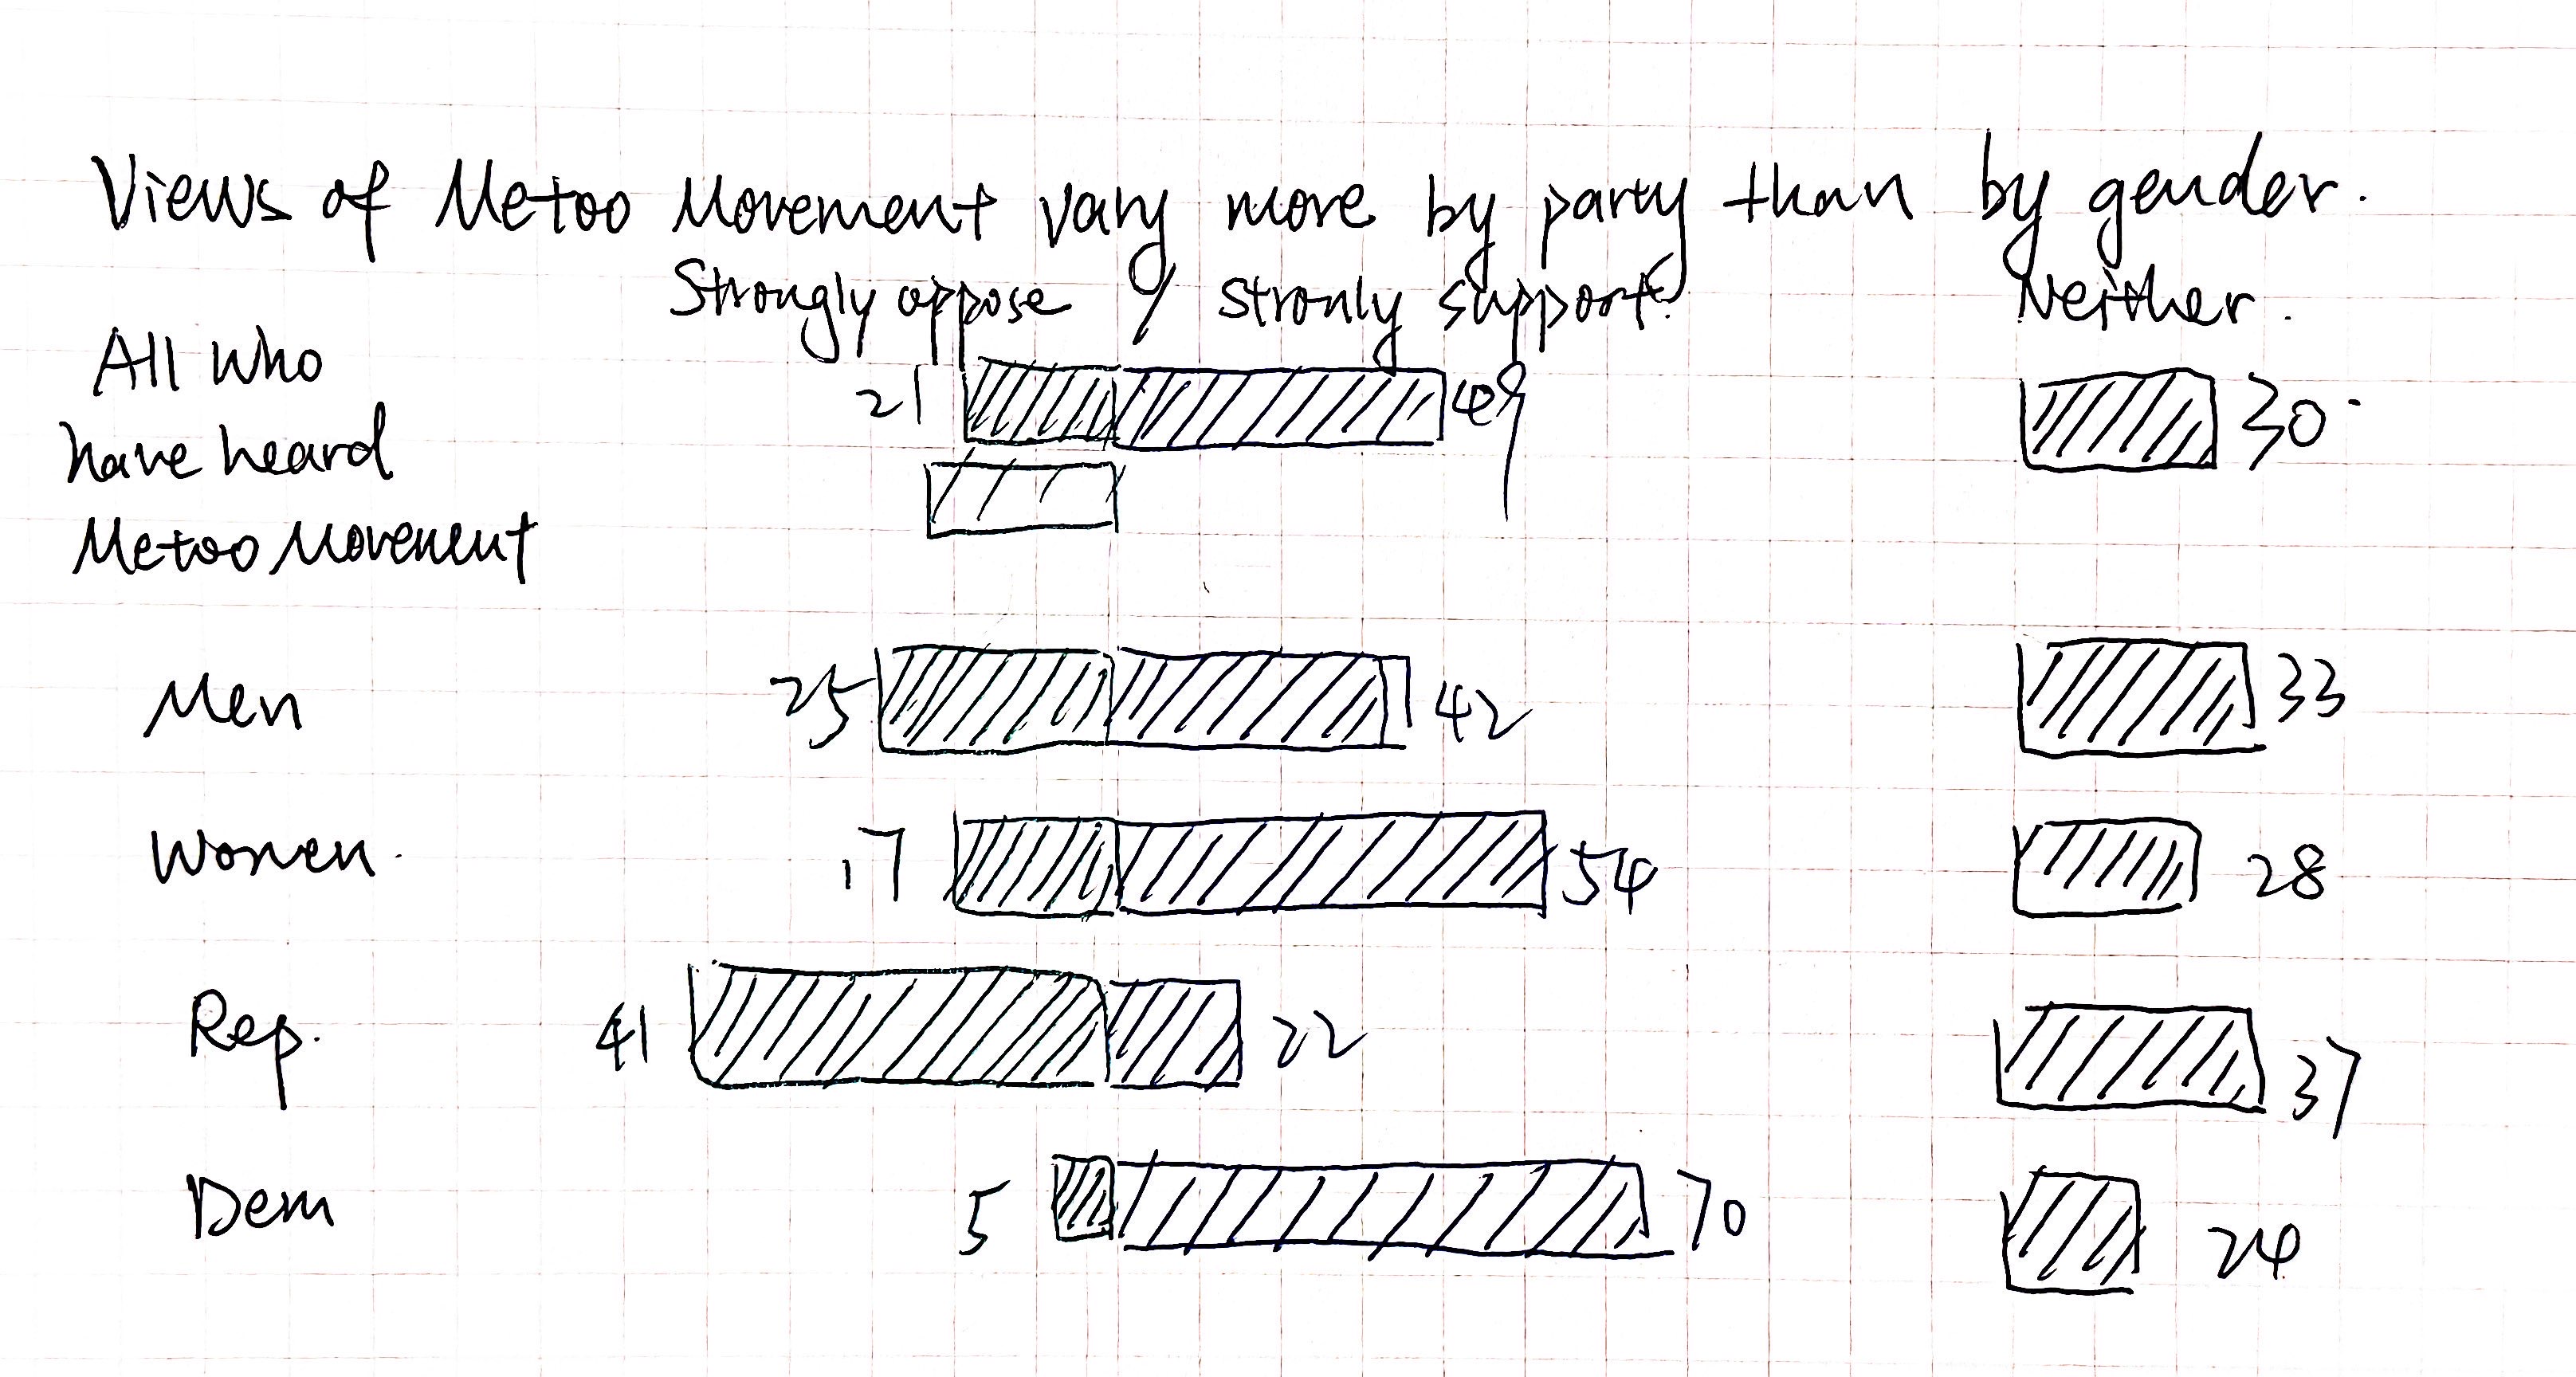 Views of Metoo Movement vary more by party than by gender.
Strongly oppose / Stronly support. Neither.
All who
have heard
Metoo Movement
21 49 30
Men 25 42 33
Women. 17 54 28
Rep. 41 22 37
Dem 5 70 24